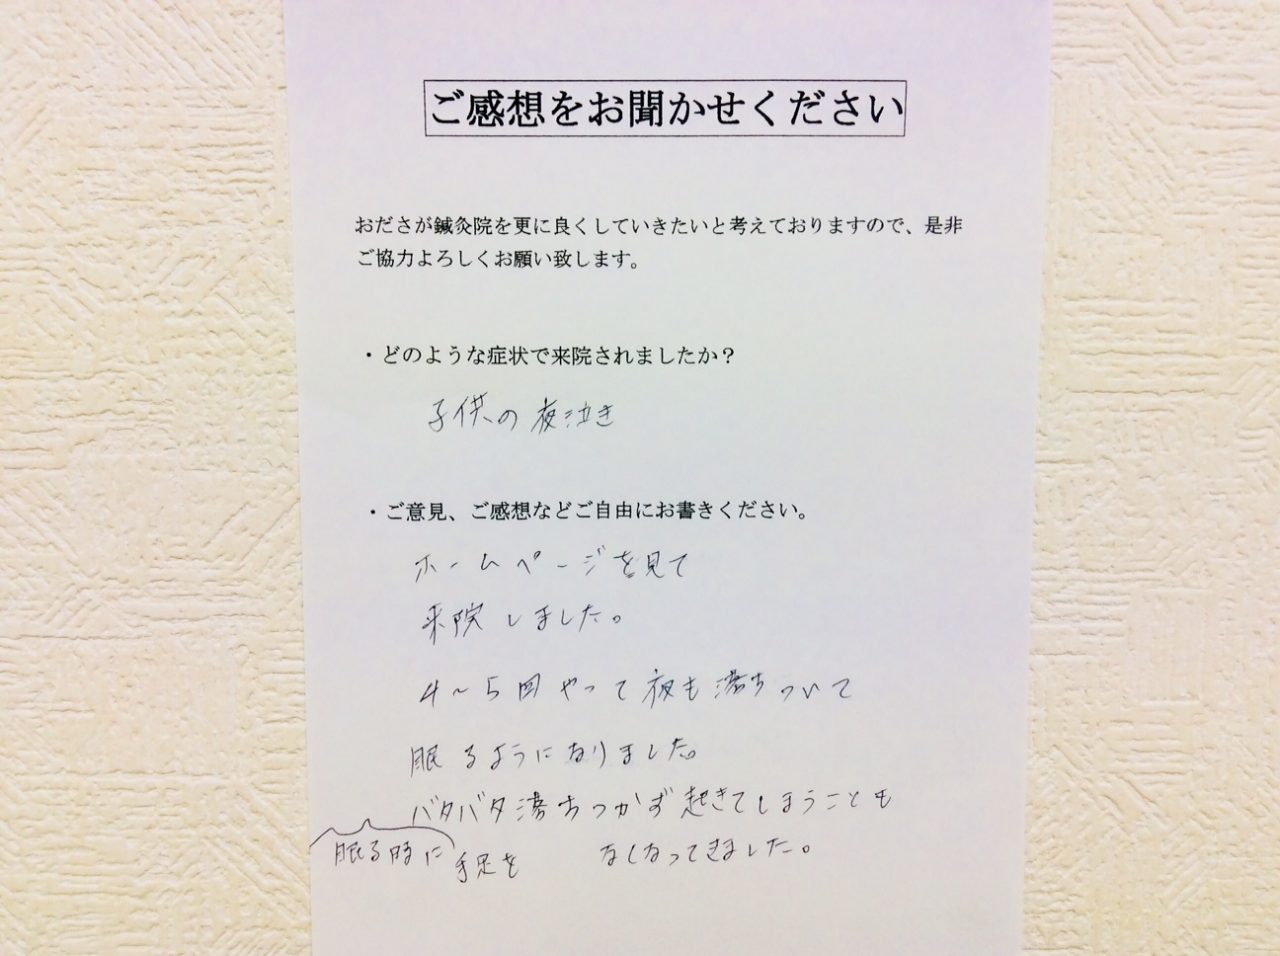 ご感想をお聞かせください
おださが鍼灸院を更に良くしていきたいと考えておりますので、是非
ご協力よろしくお願い致します。
・どのような症状で来院されましたか？
子供の夜泣き
・ご意見、ご感想などご自由にお書きください。
ホームページを見て
来院しました。
4～5回やって夜も落ちついて
眠るようになりました。
バタバタ落ちつかず起きてしまうことも
眠る時に手足を
なくなってきました。